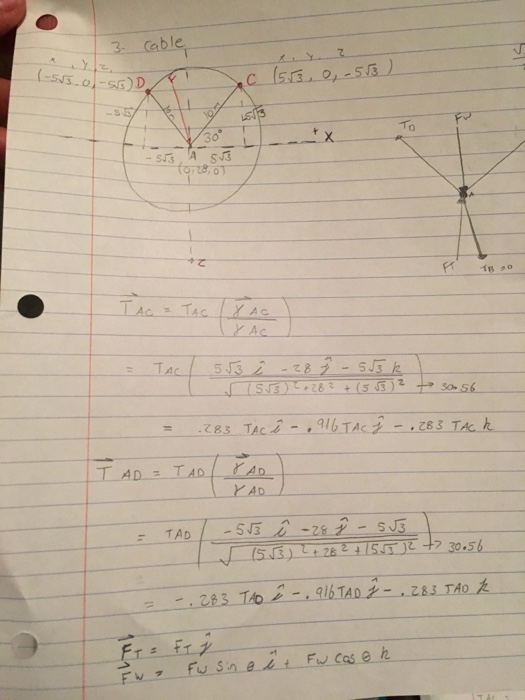 3. Cable
x, y, z,
(-5√3, 0, -5√3) D
x, y, z
C (5√3, 0, -5√3)
-5√3
10m
10m
5√3
30°
+ X
A
-5√3 5√3
(0, 28, 0)
+z
TD
FW
A
FT
TB = 0
T⃗ AC = TAC ( r⃗ AC / r AC )
= TAC ( 5√3 î - 28 ĵ - 5√3 k / √(5√3)² + 28² + (5√3)² ) → 30.56
= .283 TAC î - .916 TAC ĵ - .283 TAC k
T⃗ AD = TAD ( r⃗ AD / r AD )
= TAD ( -5√3 î - 28 ĵ - 5√3 / √(5√3)² + 28² + (5√3)² ) → 30.56
= -.283 TAD î - .916 TAD ĵ - .283 TAD k
F⃗T = FT ĵ
F⃗W = FW sin θ î + FW cos θ k